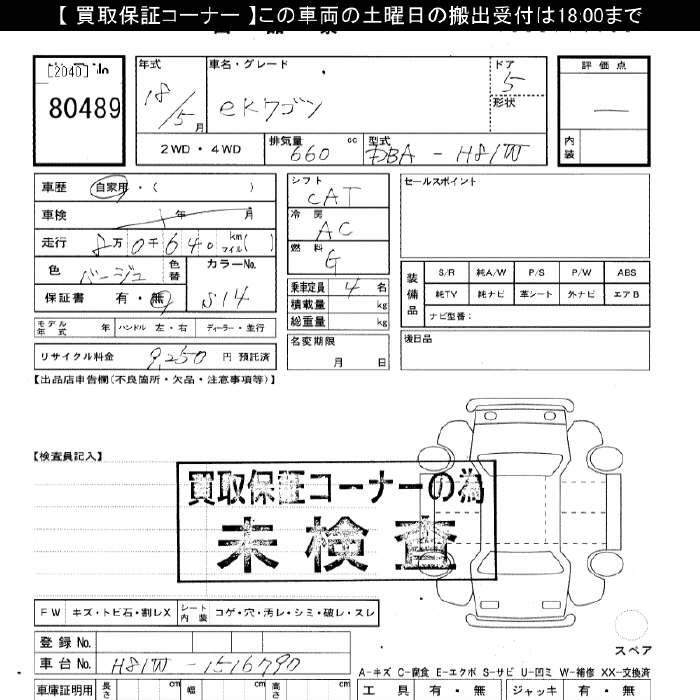 【 買取保証コーナー 】この車両の土曜日の搬出受付は18:00まで
[2040] No
80489
年式
18/5月
車名・グレード
eKワゴン
ドア
5
形状
評価点
内装
2WD・4WD
排気量
660 cc
型式
DBA - H81W
車歴 自家用・( )
車検 年 月
走行 8万0千640 km マイル( )
色 ベージュ 色替
カラーNo. S14
保証書 有・無
モデル年式 年 ハンドル 左・右 ディーラー・並行
リサイクル料金 9,250 円 預託済
シフト CAT
冷房 AC
燃料 G
乗車定員 4 名
積載量 kg
総重量 kg
名変期限
月 日
セールスポイント
装備品
S/R 純A/W P/S P/W ABS
純TV 純ナビ 革シート 外ナビ エアB
ナビ型番：
後日品
【出品店申告欄(不良箇所・欠品・注意事項等)】
【検査員記入】
買取保証コーナーの為
未検査
FW キズ・トビ石・割レX シート内装 コゲ・穴・汚レ・シミ・破レ・スレ
登録 No.
車台 No. H81W - 1516790
スペア
A-キズ C-腐食 E-エクボ S-サビ U-凹ミ W-補修 XX-交換済
車庫証明用 長さ cm 幅 cm 高さ cm
工具 有・無 ジャッキ 有・無